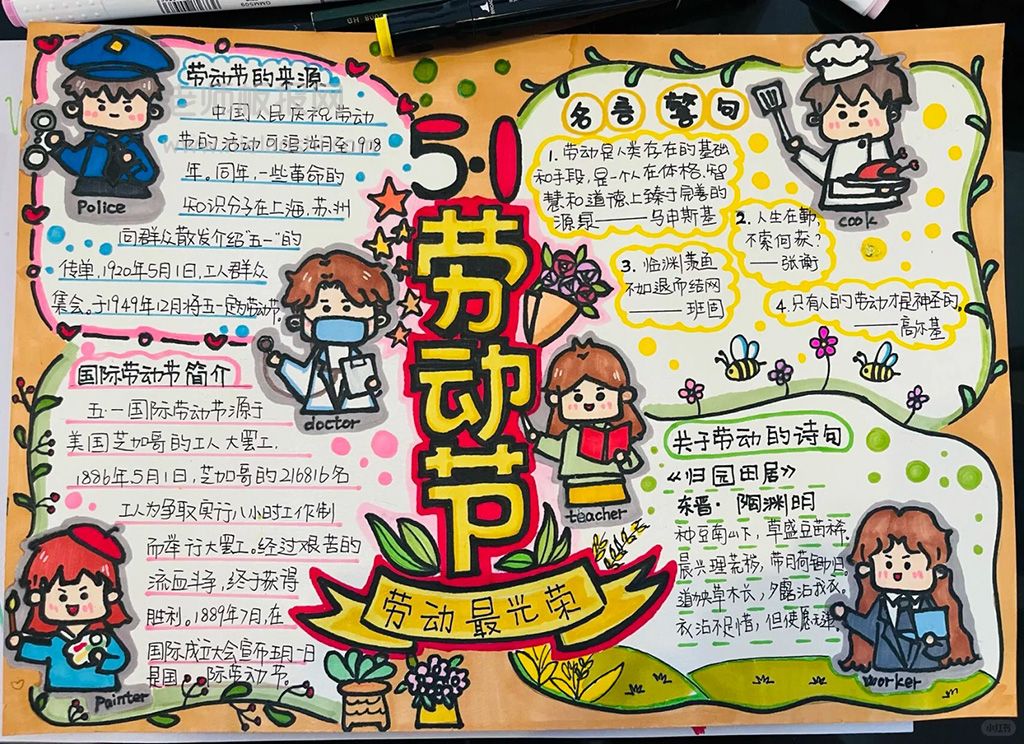 劳动节的来源
中国人民庆祝劳动
节的活动可追溯月至1918
年。同年,一些革命的
知识分子在上海、苏州
向群众散发介绍“五一”的
传单,1920年5月1日,工人群众
集会。于1949年12月将五一定为劳动节。
Police
5·1
劳动节
劳动最光荣
名言警句
1. 劳动是人类存在的基础
和手段,是一个人在体格、智
慧和道德上臻于完善的
源泉——马申斯基
2. 人生在勤,
不索何获?
——张衡
3. 临渊羡鱼
不如退而结网
——班固
4. 只有人的劳动才是神圣的。
——高尔基
cook
doctor
teacher
国际劳动节简介
五·一国际劳动节源于
美国芝加哥的工人大罢工.
1886年5月1日,芝加哥的216816名
工人为争取实行八小时工作制
而举行大罢工。经过艰苦的
流血斗争,终于获得
胜利。1889年7月,在
国际成立大会宣布五月一日
是国 际劳动节。
Painter
关于劳动的诗句
《归园田居》
东晋·陶渊明
种豆南山下,草盛豆苗稀。
晨兴理荒秽,带月荷锄归。
道狭草木长,夕露沾我衣。
衣沾不足惜,但使愿无违
worker
小红书